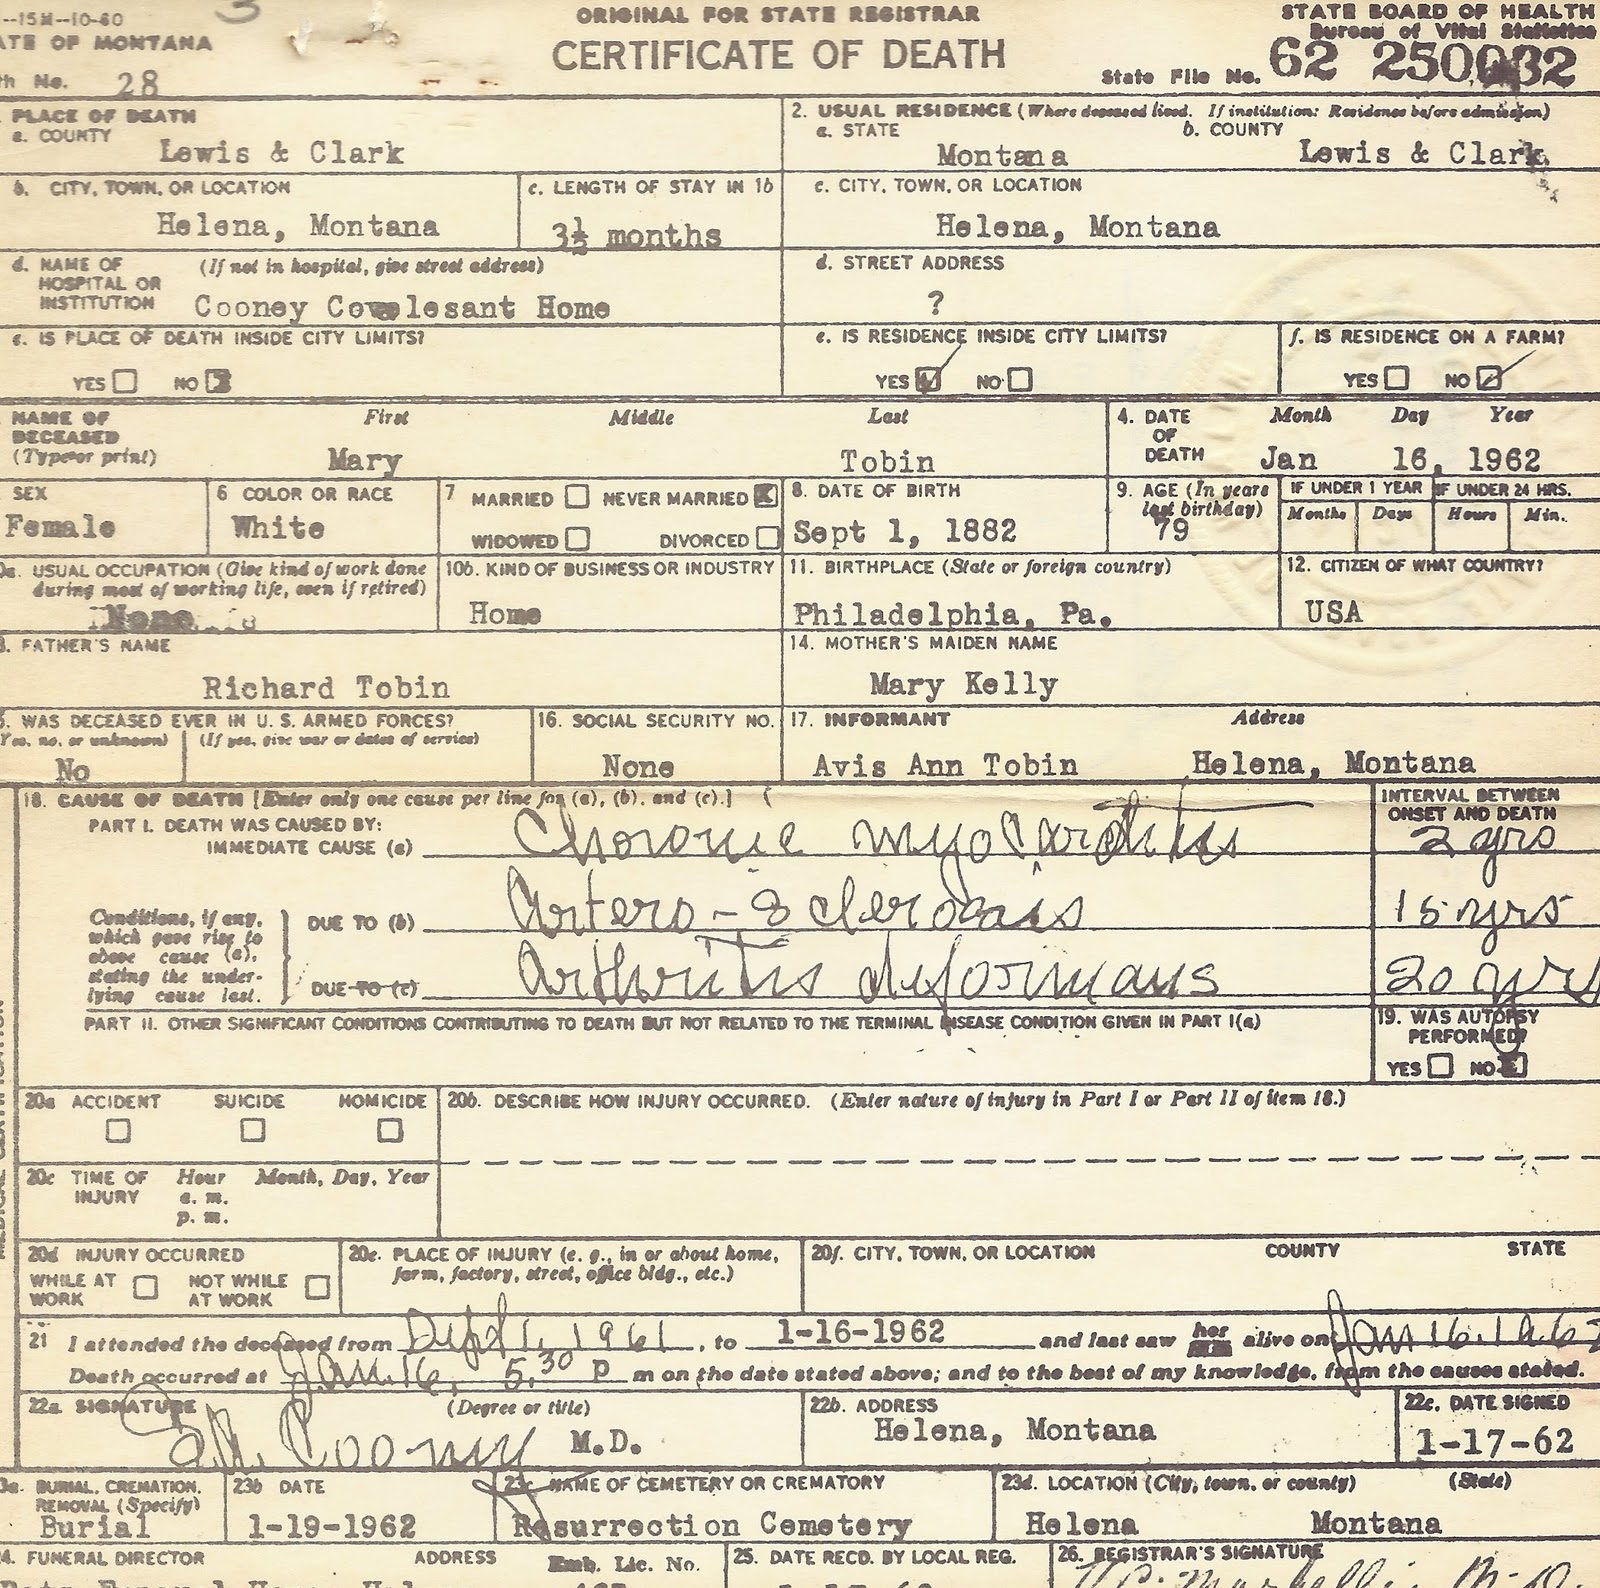 --15M--10-60
ORIGINAL FOR STATE REGISTRAR
STATE BOARD OF HEALTH
ATE OF MONTANA
CERTIFICATE OF DEATH
Bureau of Vital Statistics
th No. 28
State File No. 62
PLACE OF DEATH
a. COUNTY
Lewis & Clark
2. USUAL RESIDENCE (Where deceased lived. If institution: Residence before admission)
a. STATE b. COUNTY
Montana Lewis & Clark
b. CITY, TOWN, OR LOCATION
Helena, Montana
c. LENGTH OF STAY IN 1b
3½ months
c. CITY, TOWN, OR LOCATION
Helena, Montana
d. NAME OF (If not in hospital, give street address)
HOSPITAL OR
INSTITUTION Cooney Home
d. STREET ADDRESS
?
e. IS PLACE OF DEATH INSIDE CITY LIMITS?
YES NO
e. IS RESIDENCE INSIDE CITY LIMITS?
YES NO
f. IS RESIDENCE ON A FARM?
YES NO
NAME OF First Middle Last
DECEASED
(Type or print) Mary Tobin
4. DATE Month Day Year
OF
DEATH Jan 16, 1962
SEX
Female
6 COLOR OR RACE
White
7 MARRIED NEVER MARRIED
WIDOWED DIVORCED
8. DATE OF BIRTH
Sept 1, 1882
9. AGE (In years
last birthday)
79
IF UNDER 1 YEAR IF UNDER 24 HRS.
Months Days Hours Min.
0a. USUAL OCCUPATION (Give kind of work done
during most of working life, even if retired)
None
10b. KIND OF BUSINESS OR INDUSTRY
Home
11. BIRTHPLACE (State or foreign country)
Philadelphia, Pa.
12. CITIZEN OF WHAT COUNTRY?
USA
3. FATHER'S NAME
Richard Tobin
14. MOTHER'S MAIDEN NAME
Mary Kelly
5. WAS DECEASED EVER IN U. S. ARMED FORCES?
Yes, no, or unknown) (If yes, give war or dates of service)
No
16. SOCIAL SECURITY NO.
None
17. INFORMANT Address
Avis Ann Tobin Helena, Montana
18. CAUSE OF DEATH [Enter only one cause per line for (a), (b), and (c).]
INTERVAL BETWEEN
ONSET AND DEATH
PART I. DEATH WAS CAUSED BY:
IMMEDIATE CAUSE (a) Choronic myocarditis 2 yrs
Conditions, if any,
which gave rise to
above cause (a),
stating the under-
lying cause last.
DUE TO (b) Artero-Sclerosis 15 yrs
DUE TO (c) Arthritis deformans 20 yrs
PART II. OTHER SIGNIFICANT CONDITIONS CONTRIBUTING TO DEATH BUT NOT RELATED TO THE TERMINAL DISEASE CONDITION GIVEN IN PART I(a)
19. WAS AUTOPSY
PERFORMED?
YES NO
MEDICAL CERTIFICATION
20a ACCIDENT SUICIDE HOMICIDE
20b. DESCRIBE HOW INJURY OCCURRED. (Enter nature of injury in Part I or Part II of item 18.)
20c TIME OF Hour Month, Day, Year
INJURY a. m.
p. m.
20d INJURY OCCURRED
WHILE AT NOT WHILE
WORK AT WORK
20e. PLACE OF INJURY (e. g., in or about home,
farm, factory, street, office bldg., etc.)
20f. CITY, TOWN, OR LOCATION COUNTY STATE
21 I attended the deceased from Sept 1, 1961, to 1-16-1962 and last saw her alive on Jan 16, 1962
Death occurred at Jan. 16, 5:30 p m on the date stated above; and to the best of my knowledge, from the causes stated.
22a SIGNATURE (Degree or title)
Cooney M.D.
22b. ADDRESS
Helena, Montana
22c. DATE SIGNED
1-17-62
3a. BURIAL, CREMATION,
REMOVAL (Specify)
Burial
23b DATE
1-19-1962
23c NAME OF CEMETERY OR CREMATORY
Resurrection Cemetery
23d. LOCATION (City, town, or county) (State)
Helena Montana
4. FUNERAL DIRECTOR ADDRESS Emb. Lic. No.
25. DATE RECD. BY LOCAL REG.
26. REGISTRAR'S SIGNATURE